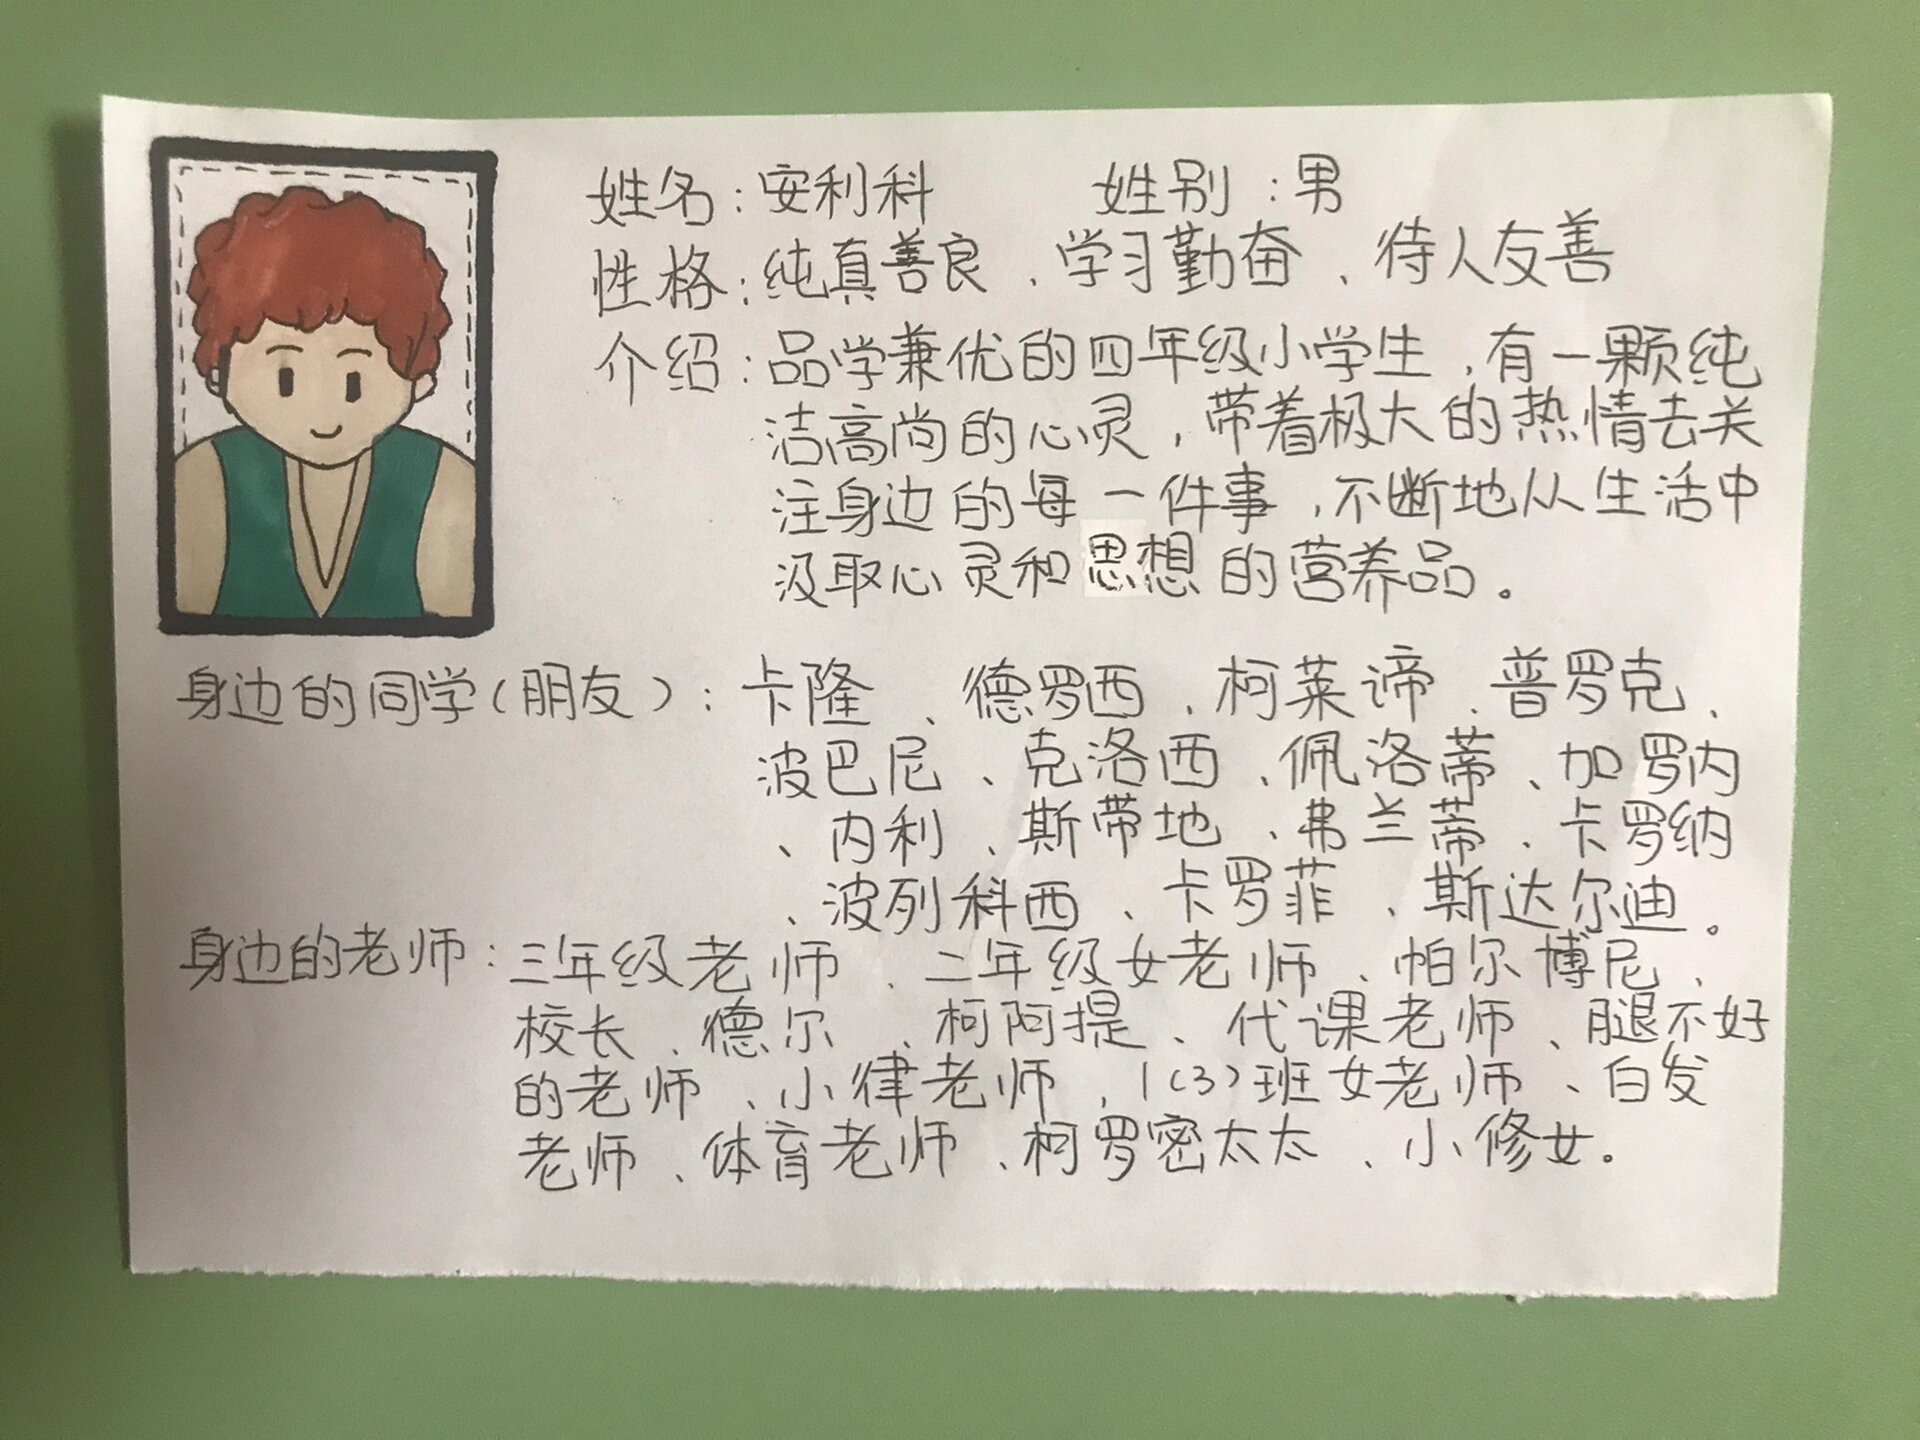 姓名：安利科 姓别：男
性格：纯真善良、学习勤奋、待人友善
介绍：品学兼优的四年级小学生，有一颗纯
洁高尚的心灵，带着极大的热情去关
注身边的每一件事，不断地从生活中
汲取心灵和思想的营养品。
身边的同学（朋友）：卡隆、德罗西、柯莱谛、普罗克、
波巴尼、克洛西、佩洛蒂、加罗内
、内利、斯带地、弗兰蒂、卡罗纳
、波列科西、卡罗菲、斯达尔迪。
身边的老师：三年级老师、二年级女老师、帕尔博尼、
校长、德尔、柯阿提、代课老师、腿不好
的老师、小律老师、1（3）班女老师、白发
老师、体育老师、柯罗密太太、小修女。